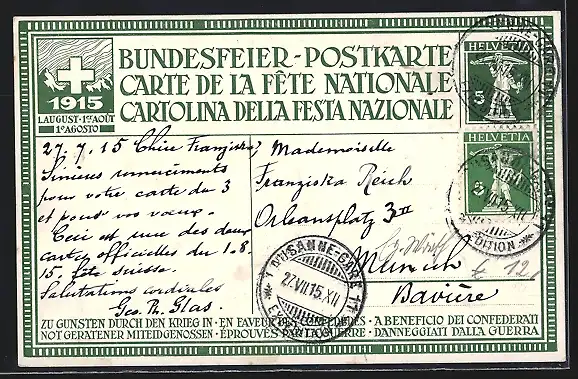 BUNDESFEIER-POSTKARTE
CARTE DE LA FÊTE NATIONALE
CARTOLINA DELLA FESTA NAZIONALE
1915
1.AUGUST·1ER AOÛT
1º AGOSTO
HELVETIA
5
HELVETIA
5
27.7.15 Chère Franziska,
Sincères remerciements
pour votre carte du 3
et pour vos vœux.
Ceci est une des deux
cartes officielles du 1.8.
15. fête suisse.
Salutations cordiales
Geo. Th. Glas.
Mademoiselle
Franziska Reich
Orleansplatz 3 II
Munich
Bavière
1 LAUSANNE-GARE 1
27.VII.15.XII
EXPÉDITION
ZU GUNSTEN DURCH DEN KRIEG IN · EN FAVEUR DE CONFÉDÉRÉS · A BENEFICIO DEI CONFEDERATI
NOT GERATENER MITEIDGENOSSEN · ÉPROUVÉS PAR LA GUERRE · DANNEGGIATI DALLA GUERRA